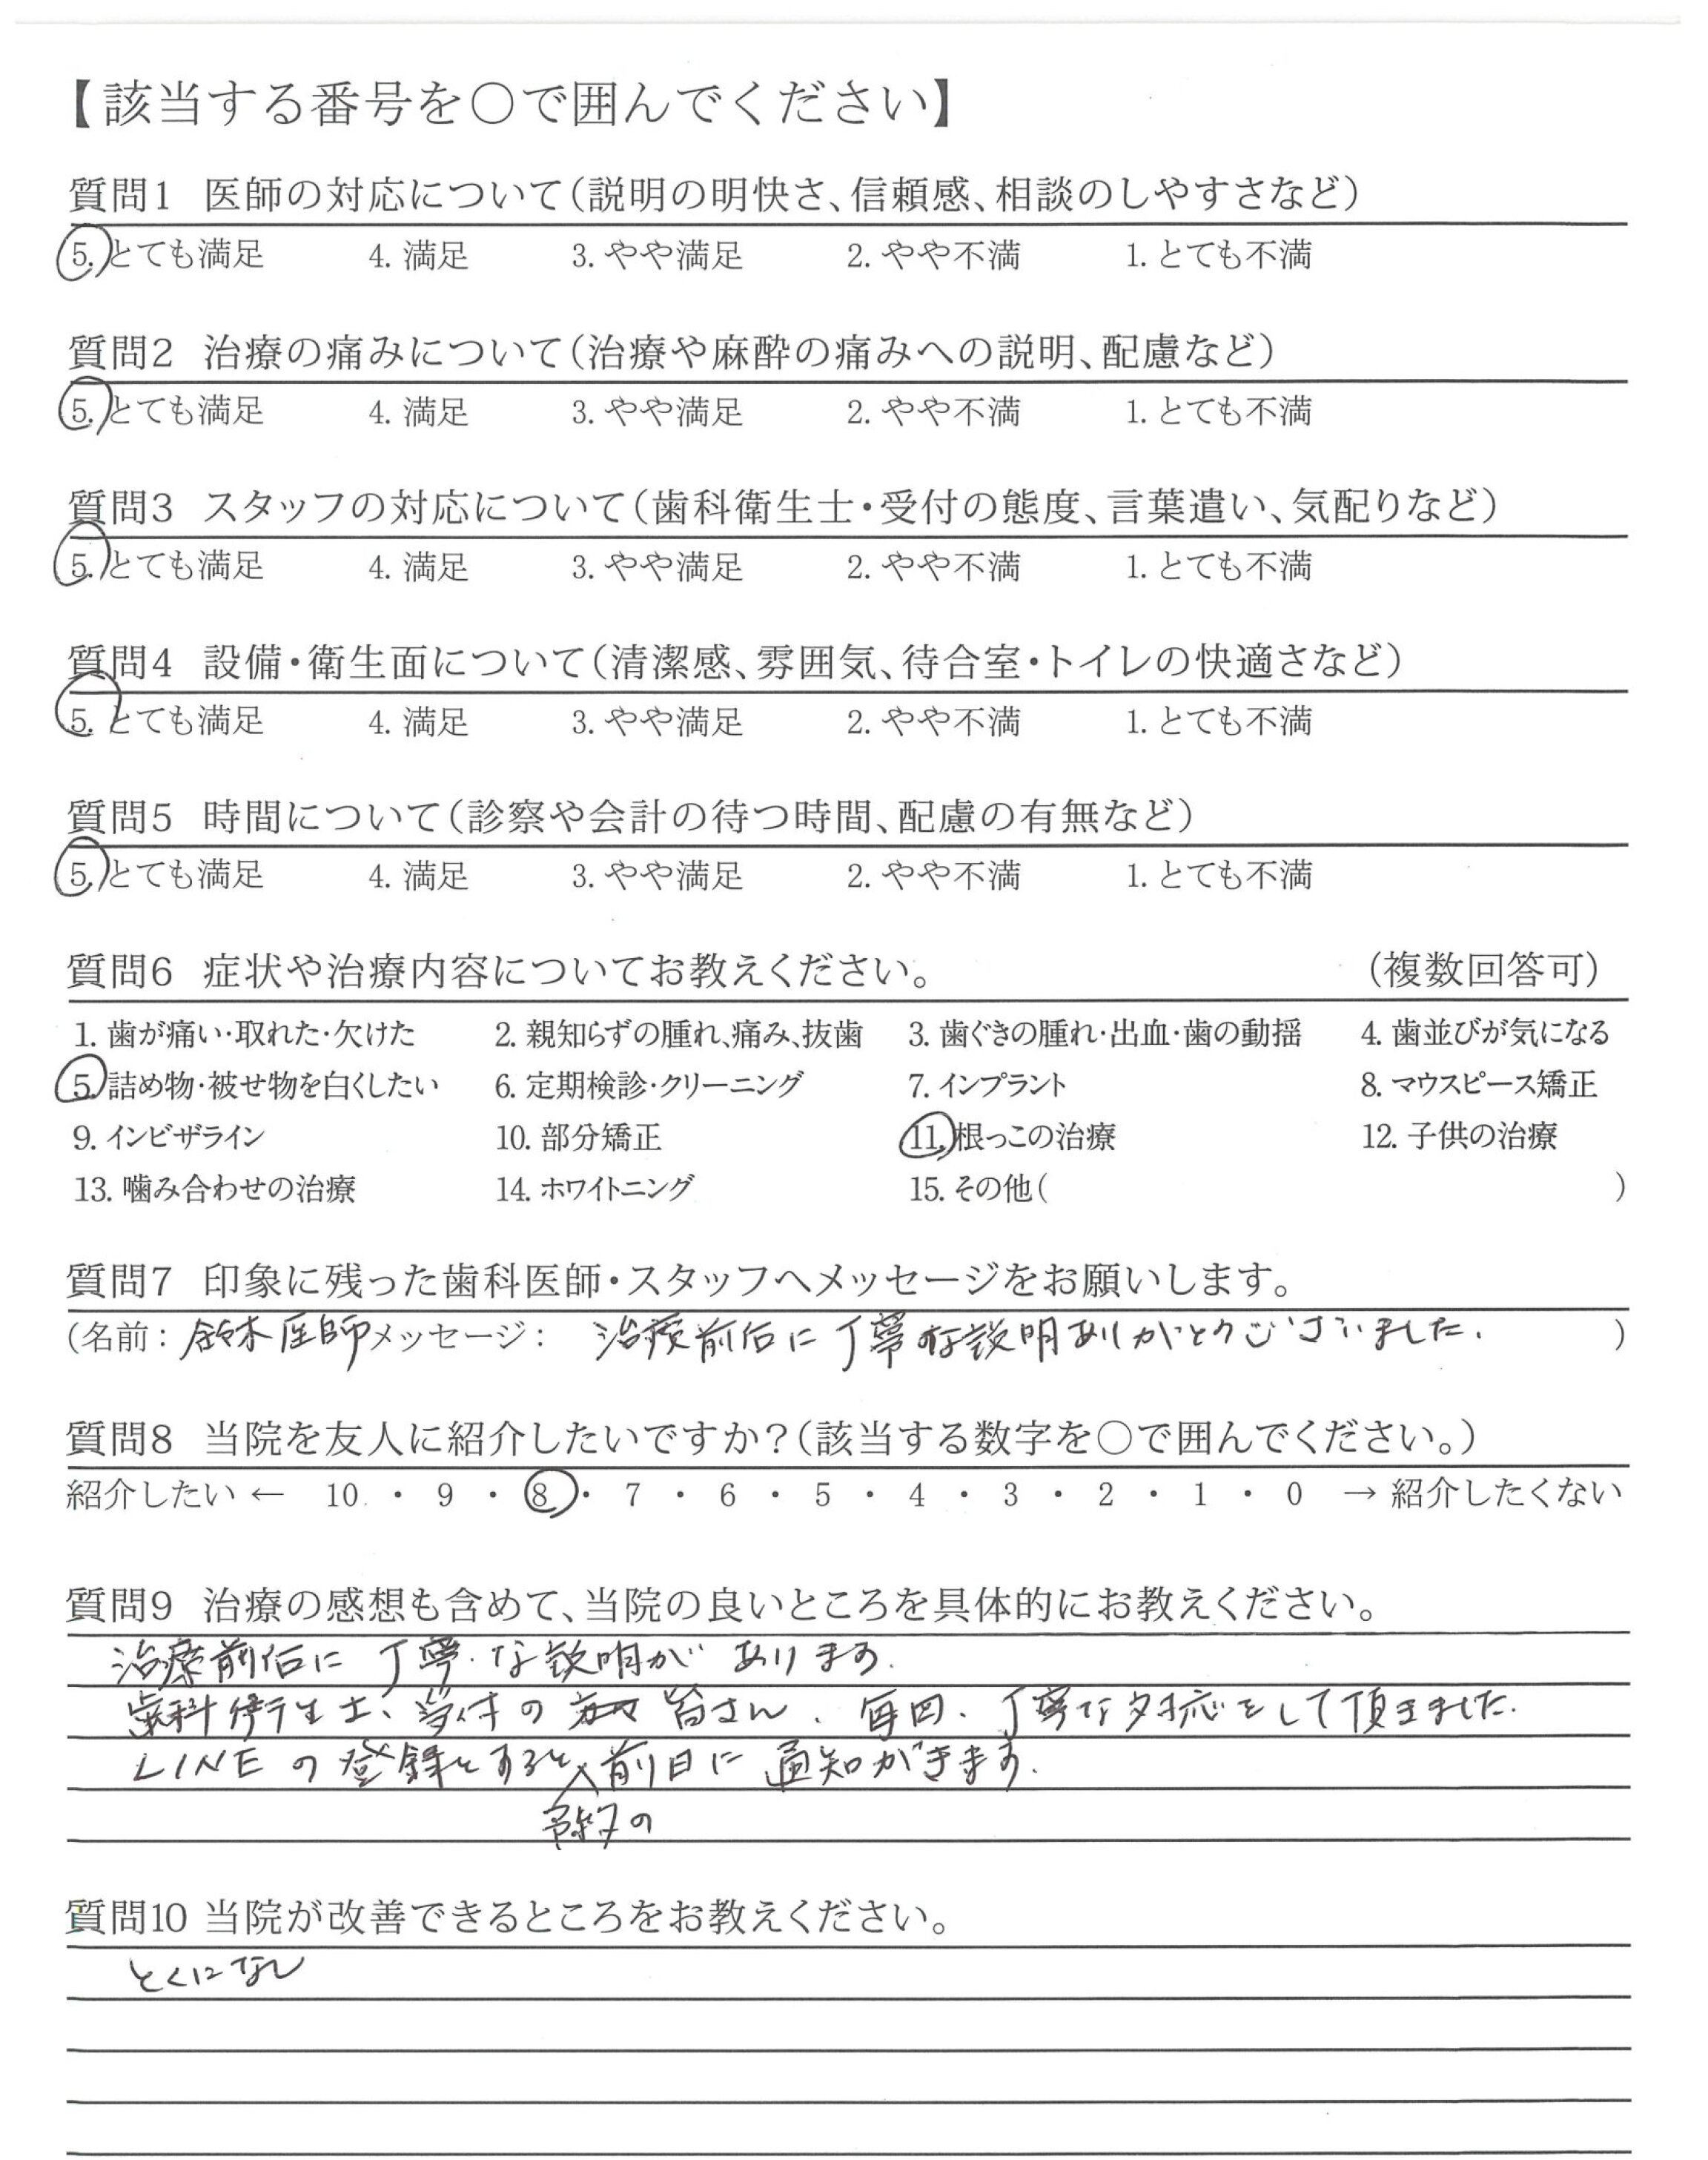 【該当する番号を〇で囲んでください】
質問1 医師の対応について(説明の明快さ、信頼感、相談のしやすさなど)
5. とても満足 4. 満足 3. やや満足 2. やや不満 1. とても不満
質問2 治療の痛みについて(治療や麻酔の痛みへの説明、配慮など)
5. とても満足 4. 満足 3. やや満足 2. やや不満 1. とても不満
質問3 スタッフの対応について(歯科衛生士・受付の態度、言葉遣い、気配りなど)
5. とても満足 4. 満足 3. やや満足 2. やや不満 1. とても不満
質問4 設備・衛生面について(清潔感、雰囲気、待合室・トイレの快適さなど)
5. とても満足 4. 満足 3. やや満足 2. やや不満 1. とても不満
質問5 時間について(診察や会計の待つ時間、配慮の有無など)
5. とても満足 4. 満足 3. やや満足 2. やや不満 1. とても不満
質問6 症状や治療内容についてお教えください。 (複数回答可)
1. 歯が痛い・取れた・欠けた 2. 親知らずの腫れ、痛み、抜歯 3. 歯ぐきの腫れ・出血・歯の動揺 4. 歯並びが気になる
5. 詰め物・被せ物を白くしたい 6. 定期検診・クリーニング 7. インプラント 8. マウスピース矯正
9. インビザライン 10. 部分矯正 11. 根っこの治療 12. 子供の治療
13. 噛み合わせの治療 14. ホワイトニング 15. その他( )
質問7 印象に残った歯科医師・スタッフへメッセージをお願いします。
(名前: 鈴木医師 メッセージ: 治療前后に丁寧な説明ありがとうございました. )
質問8 当院を友人に紹介したいですか?(該当する数字を〇で囲んでください。)
紹介したい ← 10 ・ 9 ・ 8 ・ 7 ・ 6 ・ 5 ・ 4 ・ 3 ・ 2 ・ 1 ・ 0 → 紹介したくない
質問9 治療の感想も含めて、当院の良いところを具体的にお教えください。
治療前后に丁寧な説明があります.
歯科衛生士、受付の 皆さん、毎回、丁寧な対応をして頂きました.
LINEの登録をすると 前日に通知がきます.
予約の
質問10 当院が改善できるところをお教えください。
とくになし